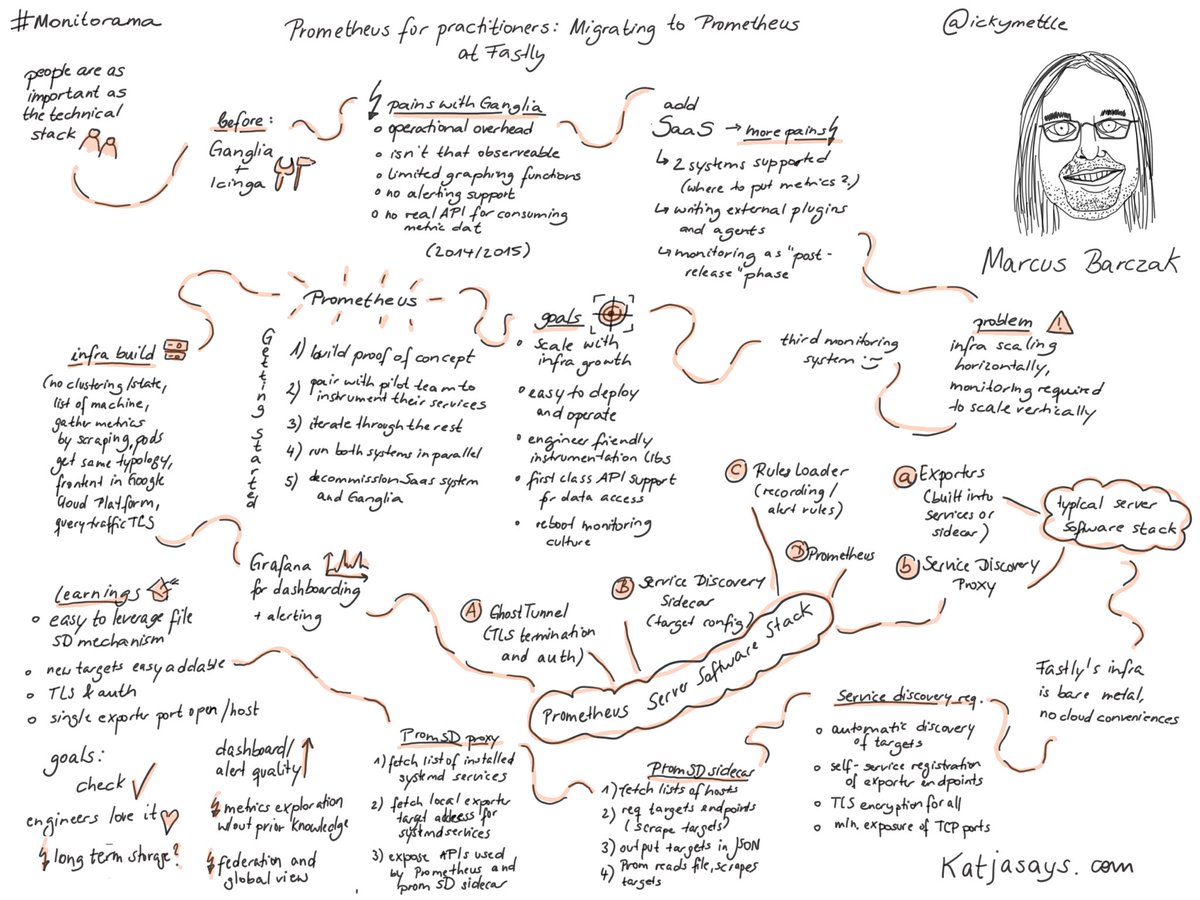 #Monitorama
Prometheus for practitioners: Migrating to Prometheus
at Fastly
@ickymettle
Marcus Barczak
people are as
important as
the technical
stack
before:
Ganglia
+
Icinga
pains with Ganglia
operational overhead
isn't that observeable
limited graphing functions
no alerting support
no real API for consuming
metric dat
(2014/2015)
add
SaaS → more pains
↳ 2 systems supported
(where to put metrics?)
↳ writing external plugins
and agents
↳ monitoring as "post-
release" phase
problem
infra scaling
horizontally,
monitoring required
to scale vertically
third monitoring
system :)
goals
scale with
infra growth
easy to deploy
and operate
engineer friendly
instrumentation libs
first class API support
for data access
reboot monitoring
culture
Prometheus
Getting started
1) build proof of concept
2) pair with pilot team to
instrument their services
3) iterate through the rest
4) run both systems in parallel
5) decommission SaaS system
and Ganglia
infra build
(no clustering/state,
list of machine,
gather metrics
by scraping, pods
get same typology,
frontent in Google
Cloud Platform,
query traffic TLS
Grafana
for dashboarding
+ alerting
Prometheus Server Software Stack
A GhostTunnel
(TLS termination
and auth)
B Service Discovery
Sidecar
(target config)
C Rules Loader
(recording/
alert rules)
D Prometheus
typical server
software stack
a Exporters
(built into
services or
sidecar)
b Service Discovery
Proxy
Fastly's infra
is bare metal,
no cloud conveniences
Service discovery req.
automatic discovery
of targets
self-service registration
of exporter endpoints
TLS encryption for all
min. exposure of TCP ports
Prom SD sidecar
1) fetch lists of hosts
2) req targets endpoints
(scrape targets)
3) output targets in JSON
4) Prom reads file, scrapes
targets
Prom SD proxy
1) fetch list of installed
systemd services
2) fetch local exporter
target address for
systmd services
3) expose APIs used
by Prometheus and
prom SD sidecar
learnings
easy to leverage file
SD mechanism
new targets easy addable
TLS & auth
single exporter port open/host
goals:
check ✓
engineers love it
long term storage?
dashboard/
alert quality ↑
metrics exploration
w/out prior knowledge
federation and
global view
Katjasays.com